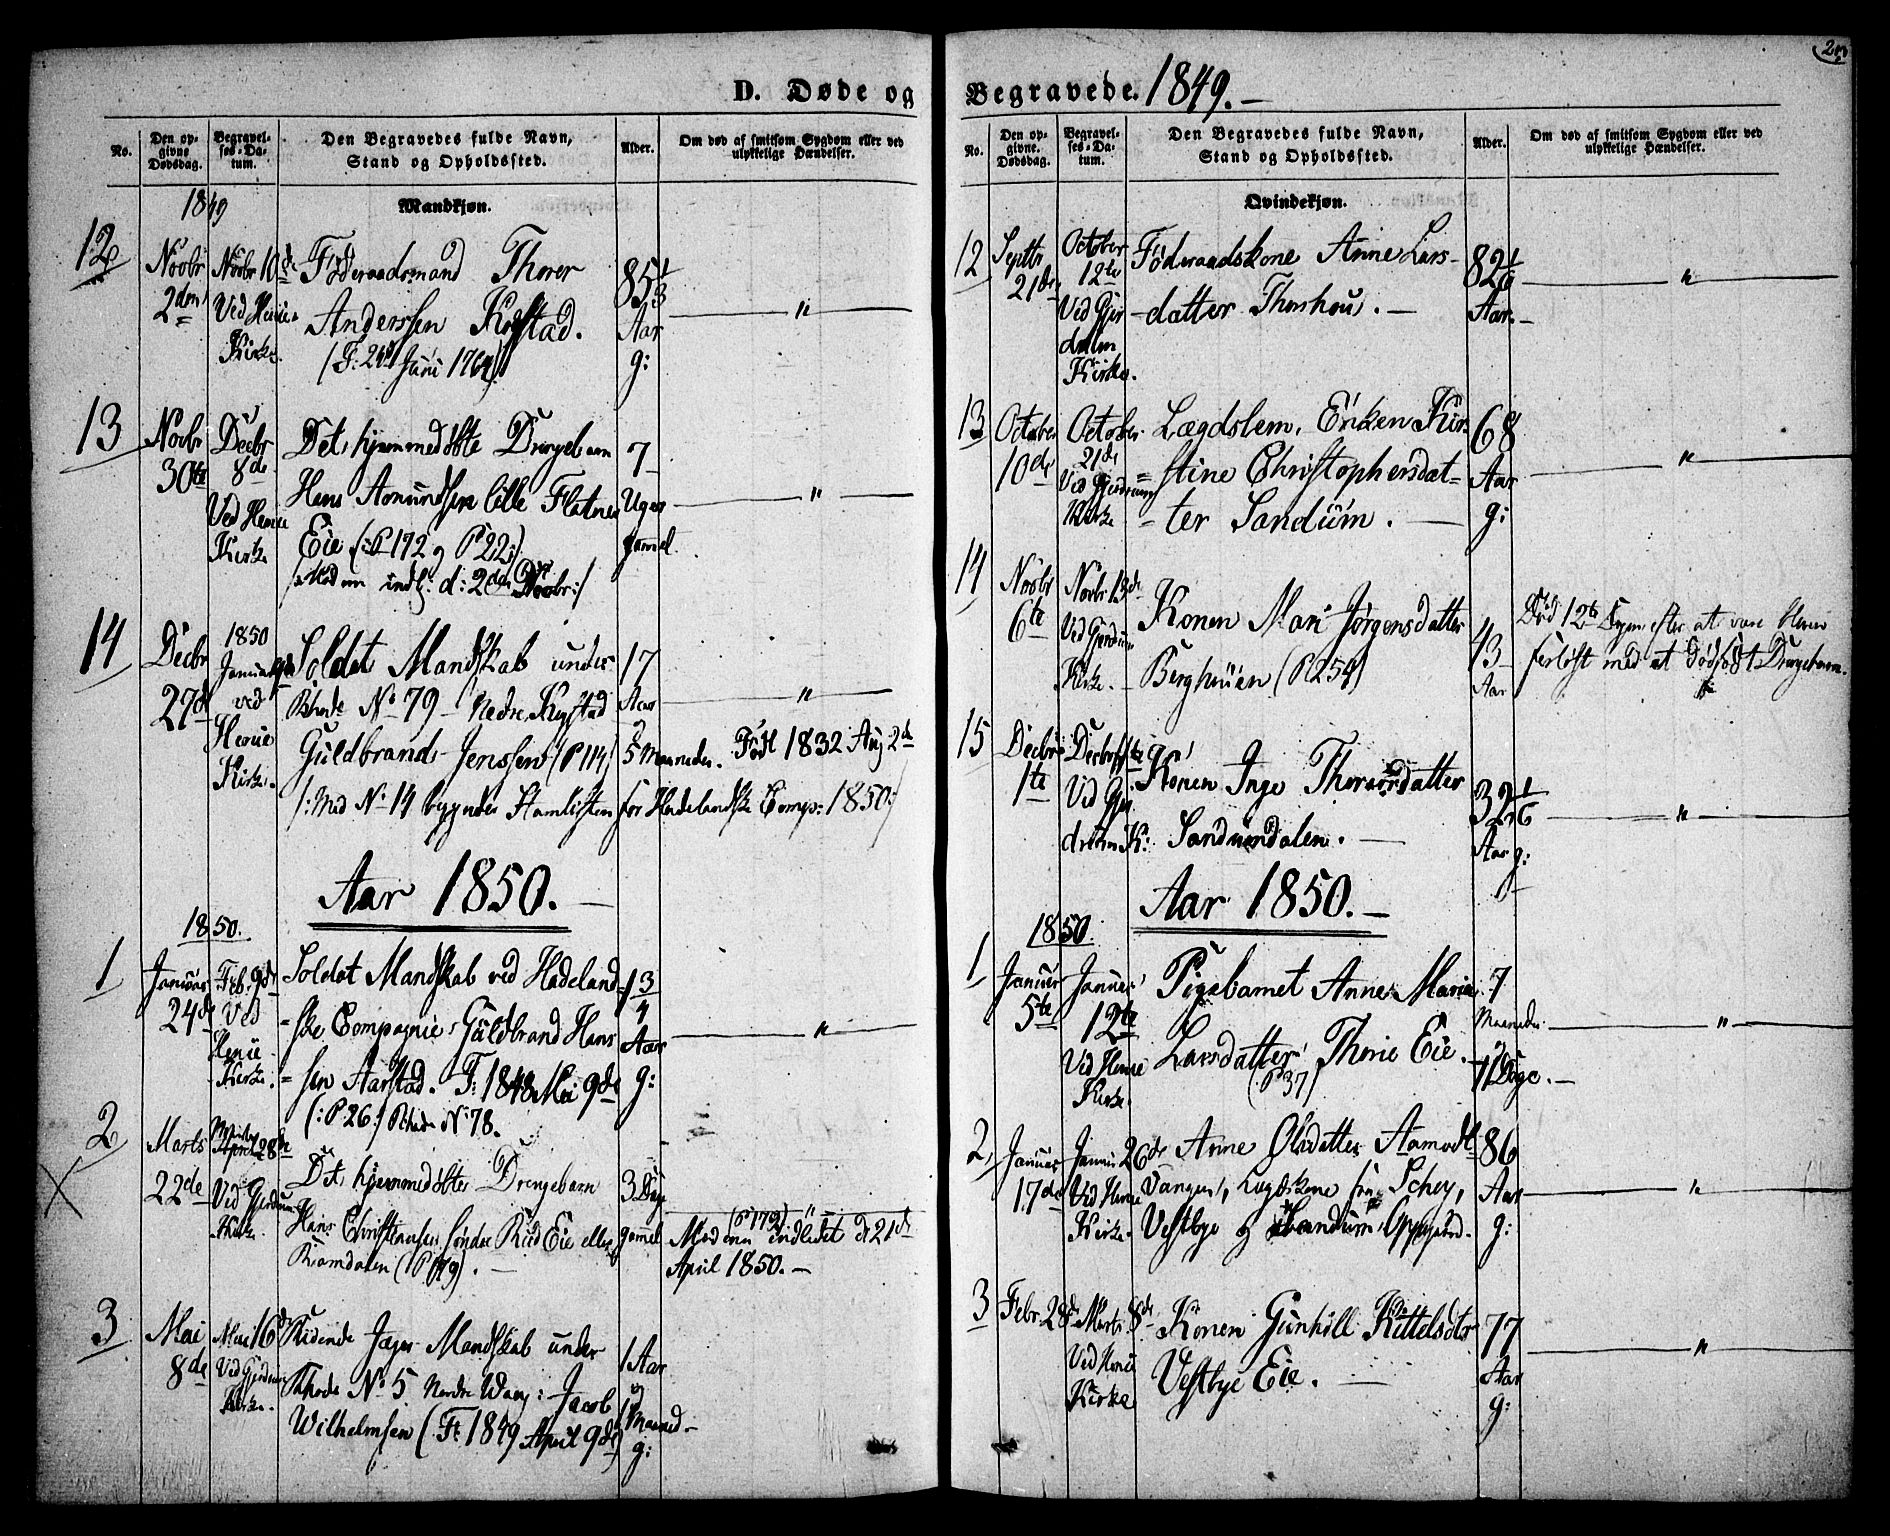 D. Døde og
No.
Den op-
givne
Dødsdag.
Begravel-
ses-Da-
tum.
Den Begravedes fulde Navn,
Stand og Opholdssted.
Alder.
Om død af smitsom Sygdom eller ved
ulykkelige Hændelser.
1849
Mandkjøn.
12
Novbr
2den
Novbr 10de
Ved Heníe
Kirke.
Föderaadsmand Thorer
Anderssen Kogstad.
(F: 24d Juni 1764)
85 1/3
Aar
g:
"
13
Novbr
30te
Decbr
8de
Ved Heníe
Kirke
Det hjemmedøbte Drengebarn
Hans Amundsen lille Flatner
Eie (:P 172 & P 22:)
indl: d: 2den
7
Uger
gammel.
"
14
Decbr
27de
1850
Januar
ved
Heníe
Kirke.
Soldat Mandskab under
Rhode No 79 Nedre Kogstad
Guldbrand Jenssen (P 114)
17
Aar
&
5 Maaneder. Födt 1832 Aug 2de
"
/: Med No 14 begyndes Stamlisten for Hadelandske Comp: 1850:/
Aar 1850.
1850.
1
Januar
24de
Feb. 9de
Ved
Heníe
Kirke.
Soldat Mandskab ved Hadeland-
ske Compagnie Guldbrand Hans
sen Aarstad. F: 1848 Mai 9de
(:P 26:) Rhode No 78.
1 3/4
Aar
g:
"
2
X
Marts
22de
April 28de
Ved Gjerdrum
Kirke.
Det hjemmedøbte Drengebarn
Hans Christiansen søndre Ruud Eie eller
Ramdalen (P 179).
3 Dage
gammel
(P 172) "
Moderen indledet d 21de
April 1850.
3
Mai
8de
Mai 16de
Ved Gjerdrum
Kirke.
Ridende Jæger Mandskab under
Rhode No 5 Nordre Wang: Jacob
Wilhelmsen (F: 1849 April 9de)
1 Aar
&
1 Maaned
g:
Begravede. 1849.
No.
Den op-
givne.
Dødsdag.
Begravel-
ses-Da-
tum.
Den Begravedes fulde Navn,
Stand og Opholdssted.
Alder.
Om død af smitsom Sygdom eller ved
ulykkelige Hændelser.
Qvindekjøn.
12
Septbr
21de
October
12te
Ved Gjer
drum
Kirke.
Föderaadskone Anne Lars-
datter Thorshoug.
82 1/6
Aar.
"
13
October
10de
October
21de
Ved Gjerdrum
Kirke
Lægdslem, Enken Kir-
stine Christophersdat-
ter Sandum.
68
Aar
g:
"
14
Novbr
6te
Novbr 13de
Ved Gjerdrum
Kirke.
Konen Mari Jørgensdatter
Berghuúen (P 254)
43
Aar
Død 12te Dagen efter at være bleven
forløst med et dødfødt Drengebarn.
15
Decbr
1te
Ved Gjer
drum K:
Konen Inge Thorersdatter
Sandumdalen.
32 1/6
Aar g:
"
Aar 1850.
1850.
1
Januar
5te
Januar
12te
Ved Heníe
Kirke.
Pigebarnet Anne Maria
Larsdatter Thorie Eie.
(P 37)
7
Maaneder
&
11 Dage.
"
2
Januar
17de
Januar 26de
Ved Heníe
Kirke.
Anne Olsdatter Aamodt
Vangen, Lægdskone fra Schey,
Vestbye & Sandum Oppegaard.
86
Aar
g:
"
3
Febr 28de
Marts 8de
Ved Heníe
Kirke
Konen Gunhill Kittelsdtr
Vestbye Eie.
77
Aar
g:
"